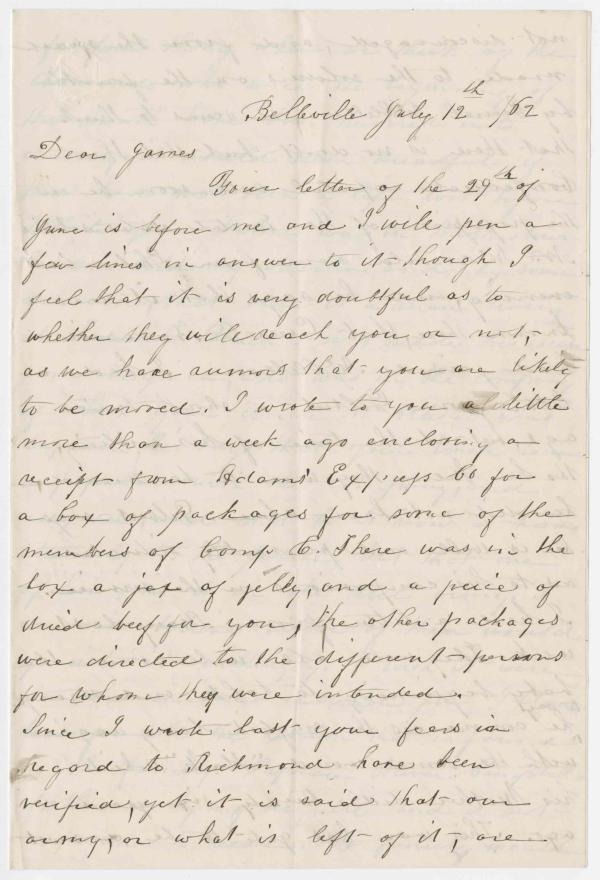 Belleville July 12th /62
Dear James
Your letter of the 29th of
June is before me and I will pen a
few lines in answer to it though I
feel that it is very doubtful as to
whether they will reach you or not,
as we have rumors that you are likely
to be moved. I wrote to you a little
more than a week ago enclosing a
receipt from Adams Express Co for
a box of packages for some of the
members of Comp E. There was in the
box a jar of jelly, and a peice of
dried beef for you, the other packages
were directed to the different persons
for whom they were intended.
Since I wrote last your fears in
regard to Richmond have been
verified, yet it is said that our
army, or what is left of it, are